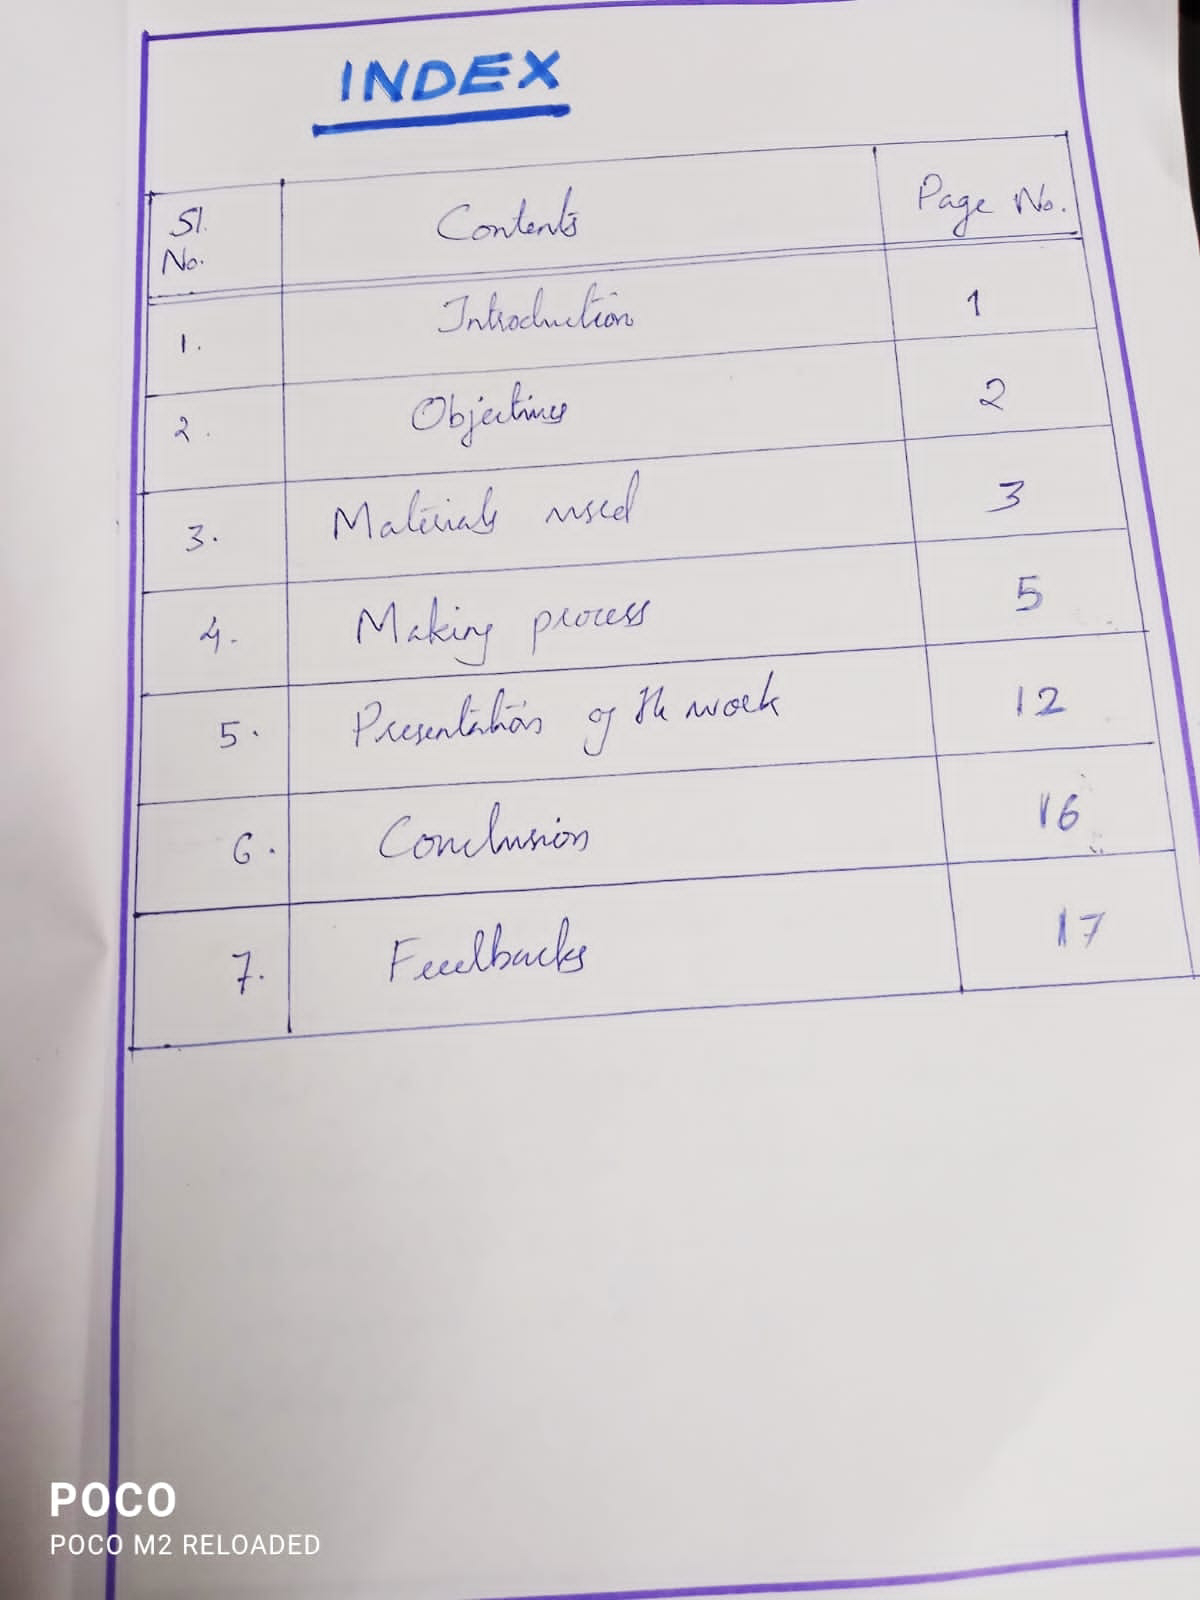 INDEX
Sl. No. Contents Page No.
1. Introduction 1
2. Objectives 2
3. Materials used 3
4. Making process 5
5. Presentation of the work 12
6. Conclusion 16
7. Feedbacks 17
POCO
POCO M2 RELOADED